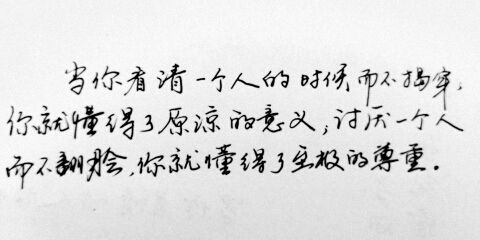 当你看清一个人的时候而不揭穿,
你就懂得了原谅的意义,讨厌一个人
而不翻脸,你就懂得了至极的尊重。